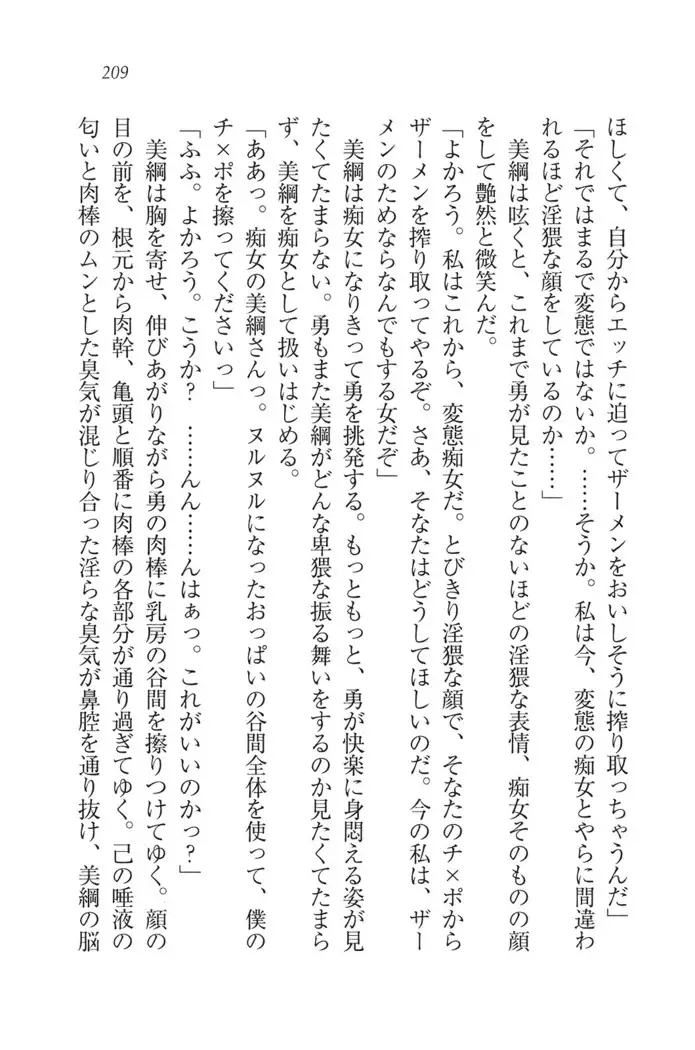 209
ほしくて、自分からエッチに迫ってザーメンをおいしそうに搾り取っちゃうんだ」
「それではまるで変態ではないか。……そうか。私は今、変態の痴女とやらに間違わ
れるほど淫猥な顔をしているのか……」
美綱は呟くと、これまで勇が見たことのないほどの淫猥な表情、痴女そのものの顔
をして艶然と微笑んだ。
「よかろう。私はこれから、変態痴女だ。とびきり淫猥な顔で、そなたのチ×ポから
ザーメンを搾り取ってやるぞ。さあ、そなたはどうしてほしいのだ。今の私は、ザー
メンのためならなんでもする女だぞ」
美綱は痴女になりきって勇を挑発する。もっともっと、勇が快楽に身悶える姿が見
たくてたまらない。勇もまた美綱がどんな卑猥な振る舞いをするのか見たくてたまら
ず、美綱を痴女として扱いはじめる。
「ああっ。痴女の美綱さんっ。ヌルヌルになったおっぱいの谷間全体を使って、僕の
チ×ポを擦ってくださいっ」
「ふふ。よかろう。こうか？　……んん……んはぁっ。これがいいのかっ？」
美綱は胸を寄せ、伸びあがりながら勇の肉棒に乳房の谷間を擦りつけてゆく。顔の
目の前を、根元から肉幹、亀頭と順番に肉棒の各部分が通り過ぎてゆく。己の唾液の
匂いと肉棒のムンとした臭気が混じり合った淫らな臭気が鼻腔を通り抜け、美綱の脳